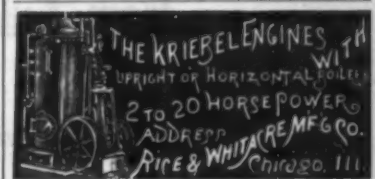 THE KRIEBEL ENGINES WITH
UPRIGHT OR HORIZONTAL BOILERS
2 TO 20 HORSE POWER
ADDRESS
RICE & WHITACRE M'F'G CO.
Chicago, Ill.